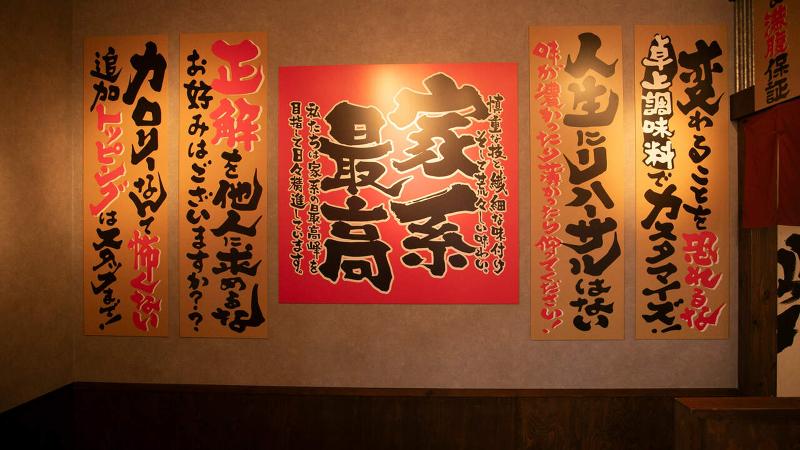 満腹保証
変わることを恐れるな
卓上調味料でカスタマイズ!
人生にリハーサルはない
味が濃かったり薄かったら仰ってください!
慎重な技と繊細な味付け
そして荒々しい味わい。
家系
最高
私たちは家系の最高峰を
目指して日々精進しています。
正解を他人に求めるな
お好みはございますか??
カロリーなんて怖くない
追加トッピングはスタッフまで!